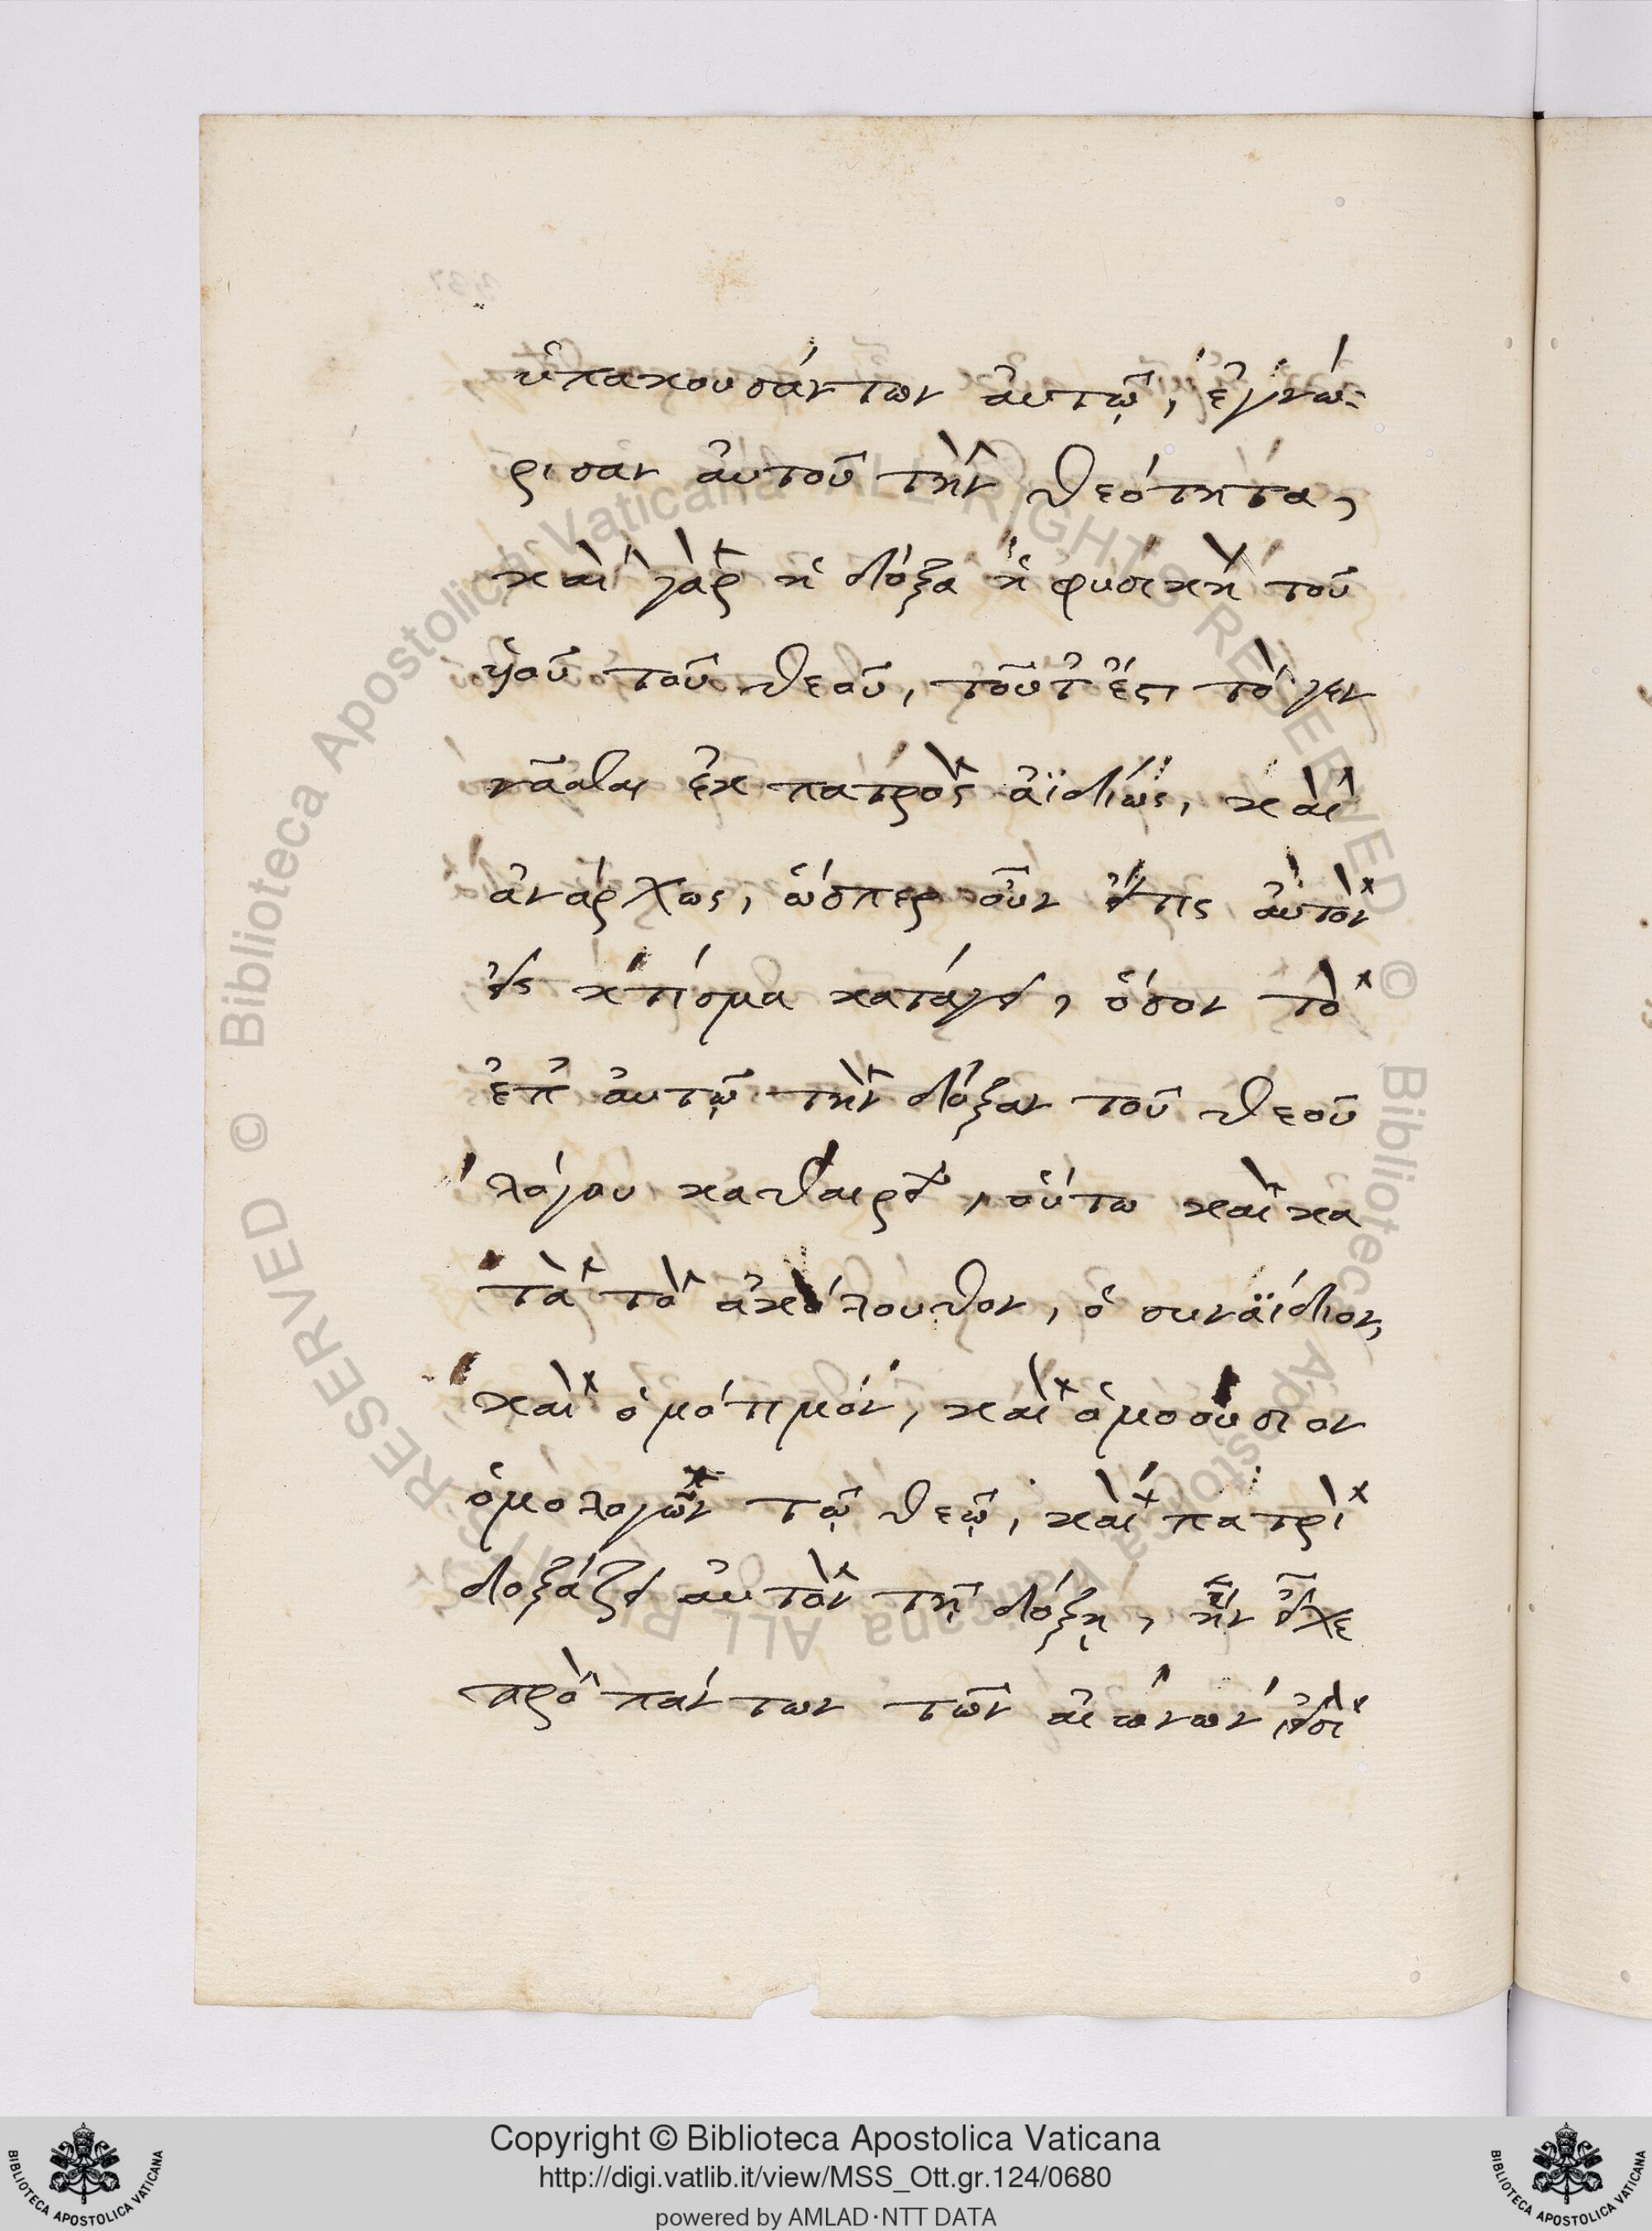 ὑπακουσάντων ἀυτῷ, ἐγνώ-
ρισαν ἀυτοῦ τὴν θεότητα,
καὶ γὰρ ἡ δόξα ἡ φυσικὴ τοῦ
ὑιοῦ τοῦ θεοῦ, τοῦτ ἔστι τὸ γεν
νᾶσθαι ἐκ πατρὸς ἀϊδίως, καὶ
ἀνάρχως, ὥσπερ οὖν εἴτις ἀυτὸν
εἰς κτίσμα κατάγει, ὅσον τὸ
ἐπ ἀυτῷ τὴν δόξαν τοῦ θεοῦ
λόγου καθαιρεῖ, οὕτω καὶ κα
τὰ τὸ ἀκόλουθον, ὁ συναΐδιον,
καὶ ὁμότιμον, καὶ ὁμοούσιον
ὁμολογῶν τῷ θεῷ, καὶ πατρὶ
δοξάζει ἀυτὸν τῇ δόξῃ, ἣν εἶχε
πρὸ πάντων τῶν αἰώνων, εἰσὶ
© Biblioteca Apostolica Vaticana ALL RIGHTS RESERVED © Biblioteca Apostolica Vaticana ALL RIGHTS RESERVED
Copyright © Biblioteca Apostolica Vaticana
http://digi.vatlib.it/view/MSS_Ott.gr.124/0680
powered by AMLAD·NTT DATA
BIBLIOTECA APOSTOLICA VATICANA
BIBLIOTECA APOSTOLICA VATICANA